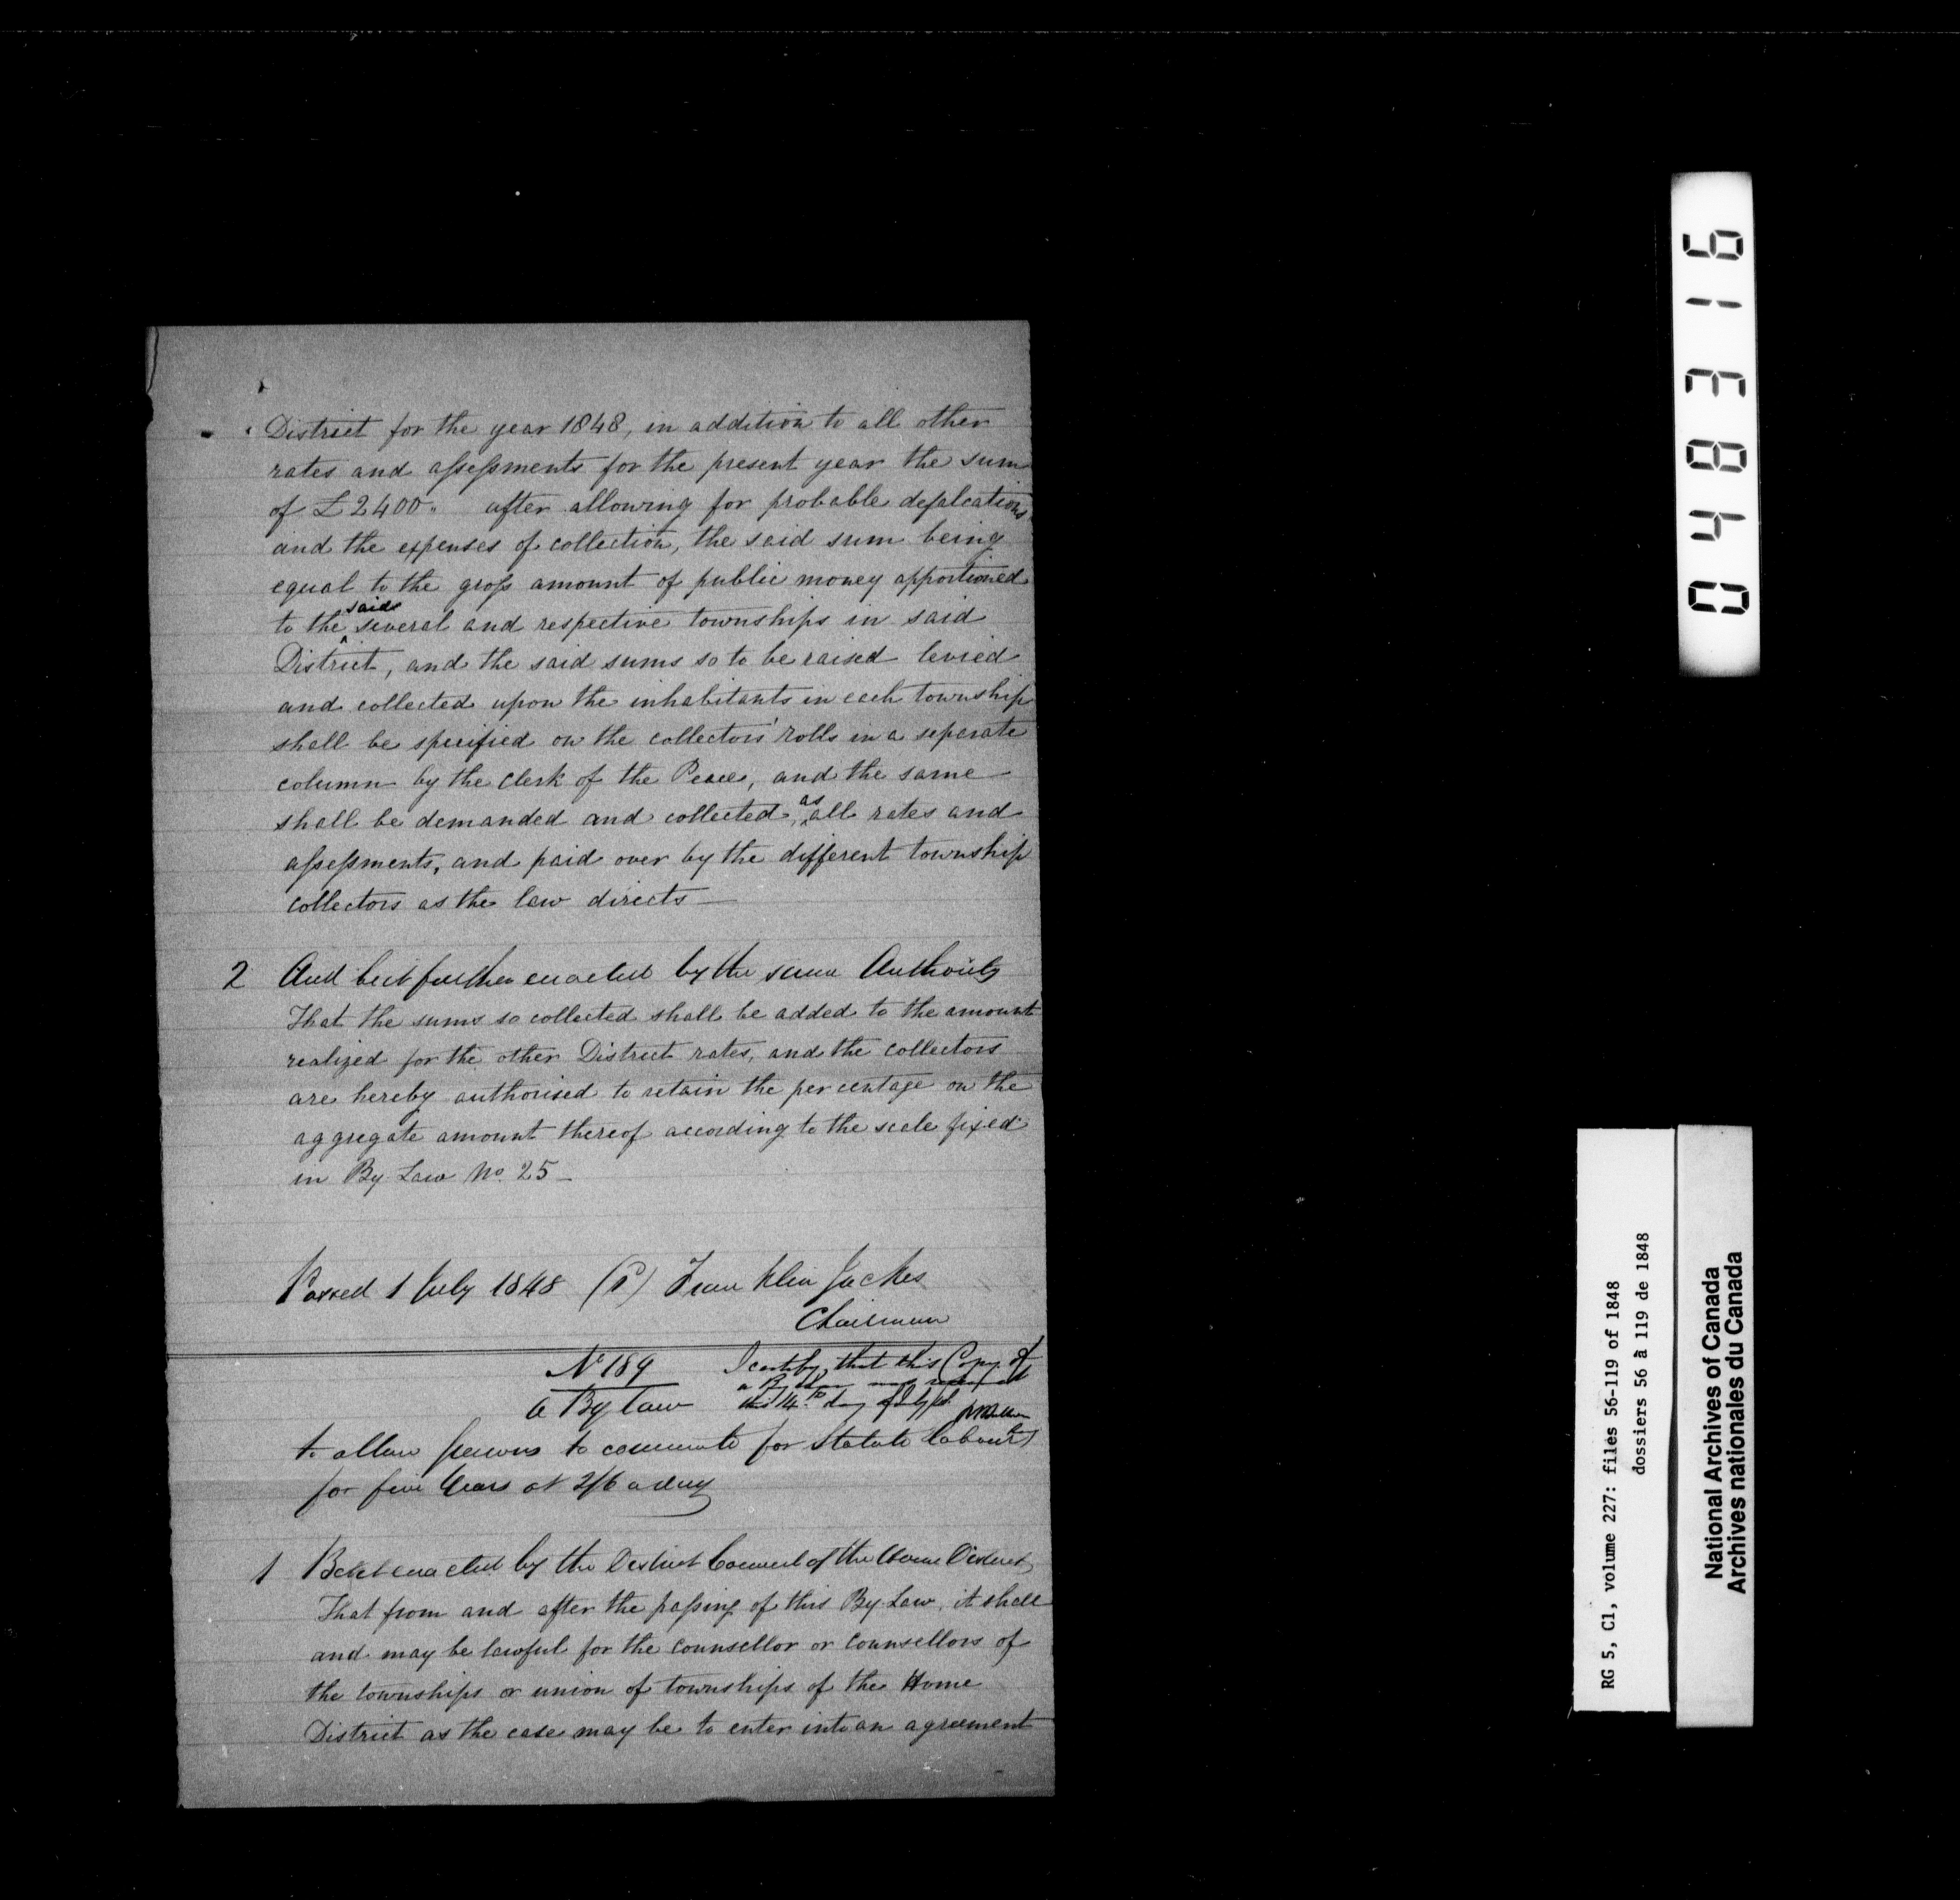 District for the year 1848, in addition to all other
rates and assessments for the present year the sum
of £2400.. after allowing for probable defalcations
and the expenses of collection, the said sum being
equal to the gross amount of public money apportioned
to the said several and respective townships in said
District, and the said sums so to be raised levied
and collected upon the inhabitants in each township
shall be specified on the collectors' rolls in a separate
column by the Clerk of the Peace, and the same
shall be demanded and collected, as all rates and
assessments, and paid over by the different township
collectors as the law directs —
2 And be it further enacted by the same Authority
That the sums so collected shall be added to the amount
realized for the other District rates, and the collectors
are hereby authorised to retain the per centage on the
aggregate amount thereof according to the scale fixed
in By Law No. 25 —
Passed 1 July 1848 (S) Franklin Jackes
Chairman
No 189
I certify that this Copy of
a By Law was
this 14th day of July
A By Law
to allow persons to commute for Statute labour
for five Years at 2/6 a day
1 Be it enacted by the District Council of the Home District
That from and after the passing of this By-Law, it shall
and may be lawful for the counsellor or counsellors of
the townships or union of townships of the Home
District as the case may be to enter into an agreement
048316
RG 5, C1, volume 227: files 56-119 of 1848
dossiers 56 à 119 de 1848
National Archives of Canada
Archives nationales du Canada